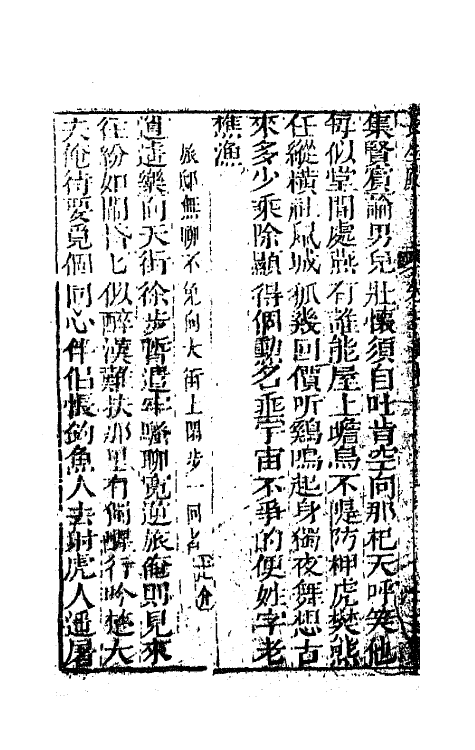 長生殿
集賢賓論男兒壯懷須自吐肯空向那杞天呼笑他
每似堂間處燕有誰能屋上瞻烏不隄防柙虎樊熊
任縱橫社鼠城狐幾回價听鷄鳴起身獨夜舞想古
來多少乘除顯得個勳名垂宇宙不爭的便姓字老
樵漁
旅邸無聊不免向大街上閒步一回者行介
逍遙樂向天街徐步暫遣牢騷聊寬逆旅俺則見來
往紛如鬧昏七似醉漢難扶那里有個醒行吟楚大
夫俺待要覓個同心伴侶悵釣魚人去射虎人遥屠